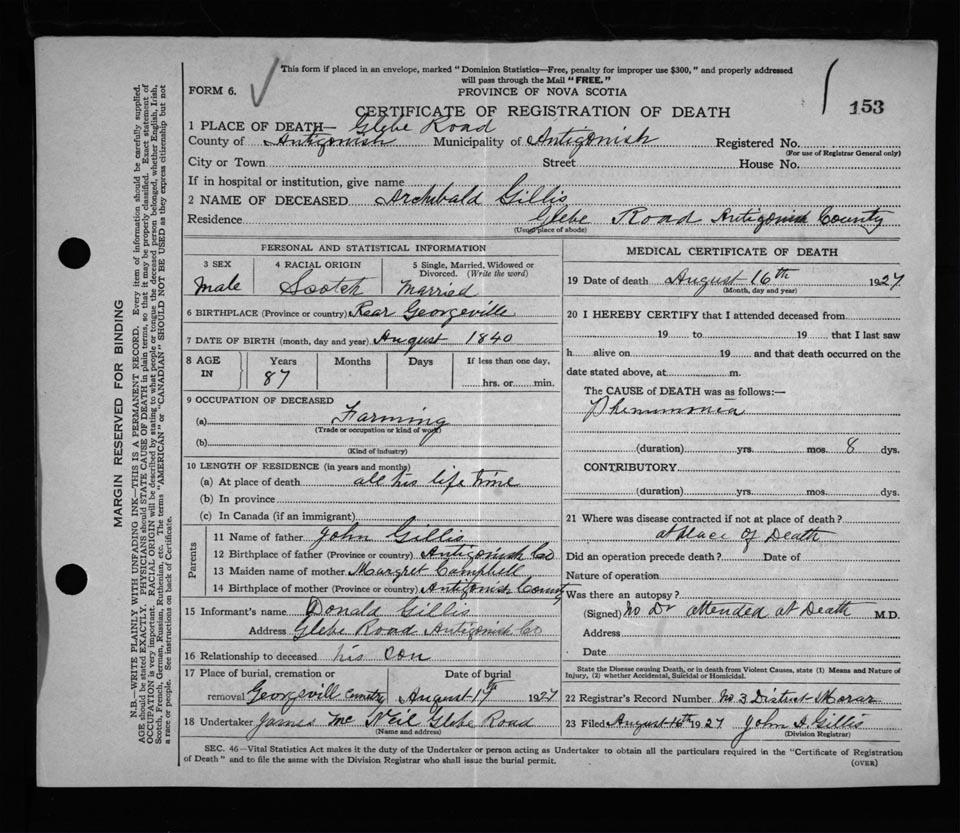 This form if placed in an envelope, marked "Dominion Statistics—Free, penalty for improper use $300," and properly addressed
will pass through the Mail "FREE."
FORM 6.
PROVINCE OF NOVA SCOTIA
153
CERTIFICATE OF REGISTRATION OF DEATH
1 PLACE OF DEATH— Glebe Road
County of Antigonish Municipality of Antigonish Registered No.
(For use of Registrar General only)
City or Town Street House No.
If in hospital or institution, give name
2 NAME OF DECEASED Archibald Gillis
Residence Glebe Road Antigonish County
(Usual place of abode)
PERSONAL AND STATISTICAL INFORMATION
3 SEX 4 RACIAL ORIGIN 5 Single, Married, Widowed or
Divorced. (Write the word)
Male Scotch Married
6 BIRTHPLACE (Province or country) Rear Georgeville
7 DATE OF BIRTH (month, day and year) August 1840
8 AGE IN Years Months Days If less than one day,
87 hrs. or min.
9 OCCUPATION OF DECEASED
(a) Farming
(Trade or occupation or kind of work)
(b)
(Kind of industry)
10 LENGTH OF RESIDENCE (in years and months)
(a) At place of death all his life time
(b) In province
(c) In Canada (if an immigrant)
Parents
11 Name of father John Gillis
12 Birthplace of father (Province or country) Antigonish Co
13 Maiden name of mother Margret Campbell
14 Birthplace of mother (Province or country) Antigonish County
15 Informant's name Donald Gillis
Address Glebe Road Antigonish Co
16 Relationship to deceased his son
17 Place of burial, cremation or Date of burial
removal Georgevill August 17 1927
18 Undertaker James Mc Neil Glebe Road
(Name and address)
MEDICAL CERTIFICATE OF DEATH
19 Date of death August 16th 1927
(Month, day and year)
20 I HEREBY CERTIFY that I attended deceased from
19 to 19 that I last saw
h alive on 19 and that death occurred on the
date stated above, at m.
The CAUSE of DEATH was as follows:—
Phenumonea
(duration) yrs. mos. 8 dys.
CONTRIBUTORY
(duration) yrs. mos. dys.
21 Where was disease contracted if not at place of death?
at place of Death
Did an operation precede death? Date of
Nature of operation
Was there an autopsy?
(Signed) No Dr attended at Death M.D.
Address
Date
State the Disease causing Death, or in death from Violent Causes, state (1) Means and Nature of
Injury, (2) whether Accidental, Suicidal or Homicidal.
22 Registrar's Record Number No 3 District Morar
23 Filed August 16th 1927 John A. Gillis
(Division Registrar)
SEC. 46—Vital Statistics Act makes it the duty of the Undertaker or person acting as Undertaker to obtain all the particulars required in the "Certificate of Registration
of Death" and to file the same with the Division Registrar who shall issue the burial permit.
(OVER)
MARGIN RESERVED FOR BINDING
N.B.—WRITE PLAINLY WITH UNFADING INK—THIS IS A PERMANENT RECORD. Every item of information should be carefully supplied.
AGE should be stated EXACTLY. PHYSICIANS should STATE CAUSE OF DEATH in plain terms, so that it may be properly classified. Exact statement of
OCCUPATION is very important. RACIAL ORIGIN will be described by stating to what people or tongue the deceased person belonged, whether English, Irish,
Scotch, French, German, Russian, Ruthenian, etc. The terms "AMERICAN" or "CANADIAN" SHOULD NOT BE USED as they express citizenship but not
a race or people. See instructions on back of Certificate.